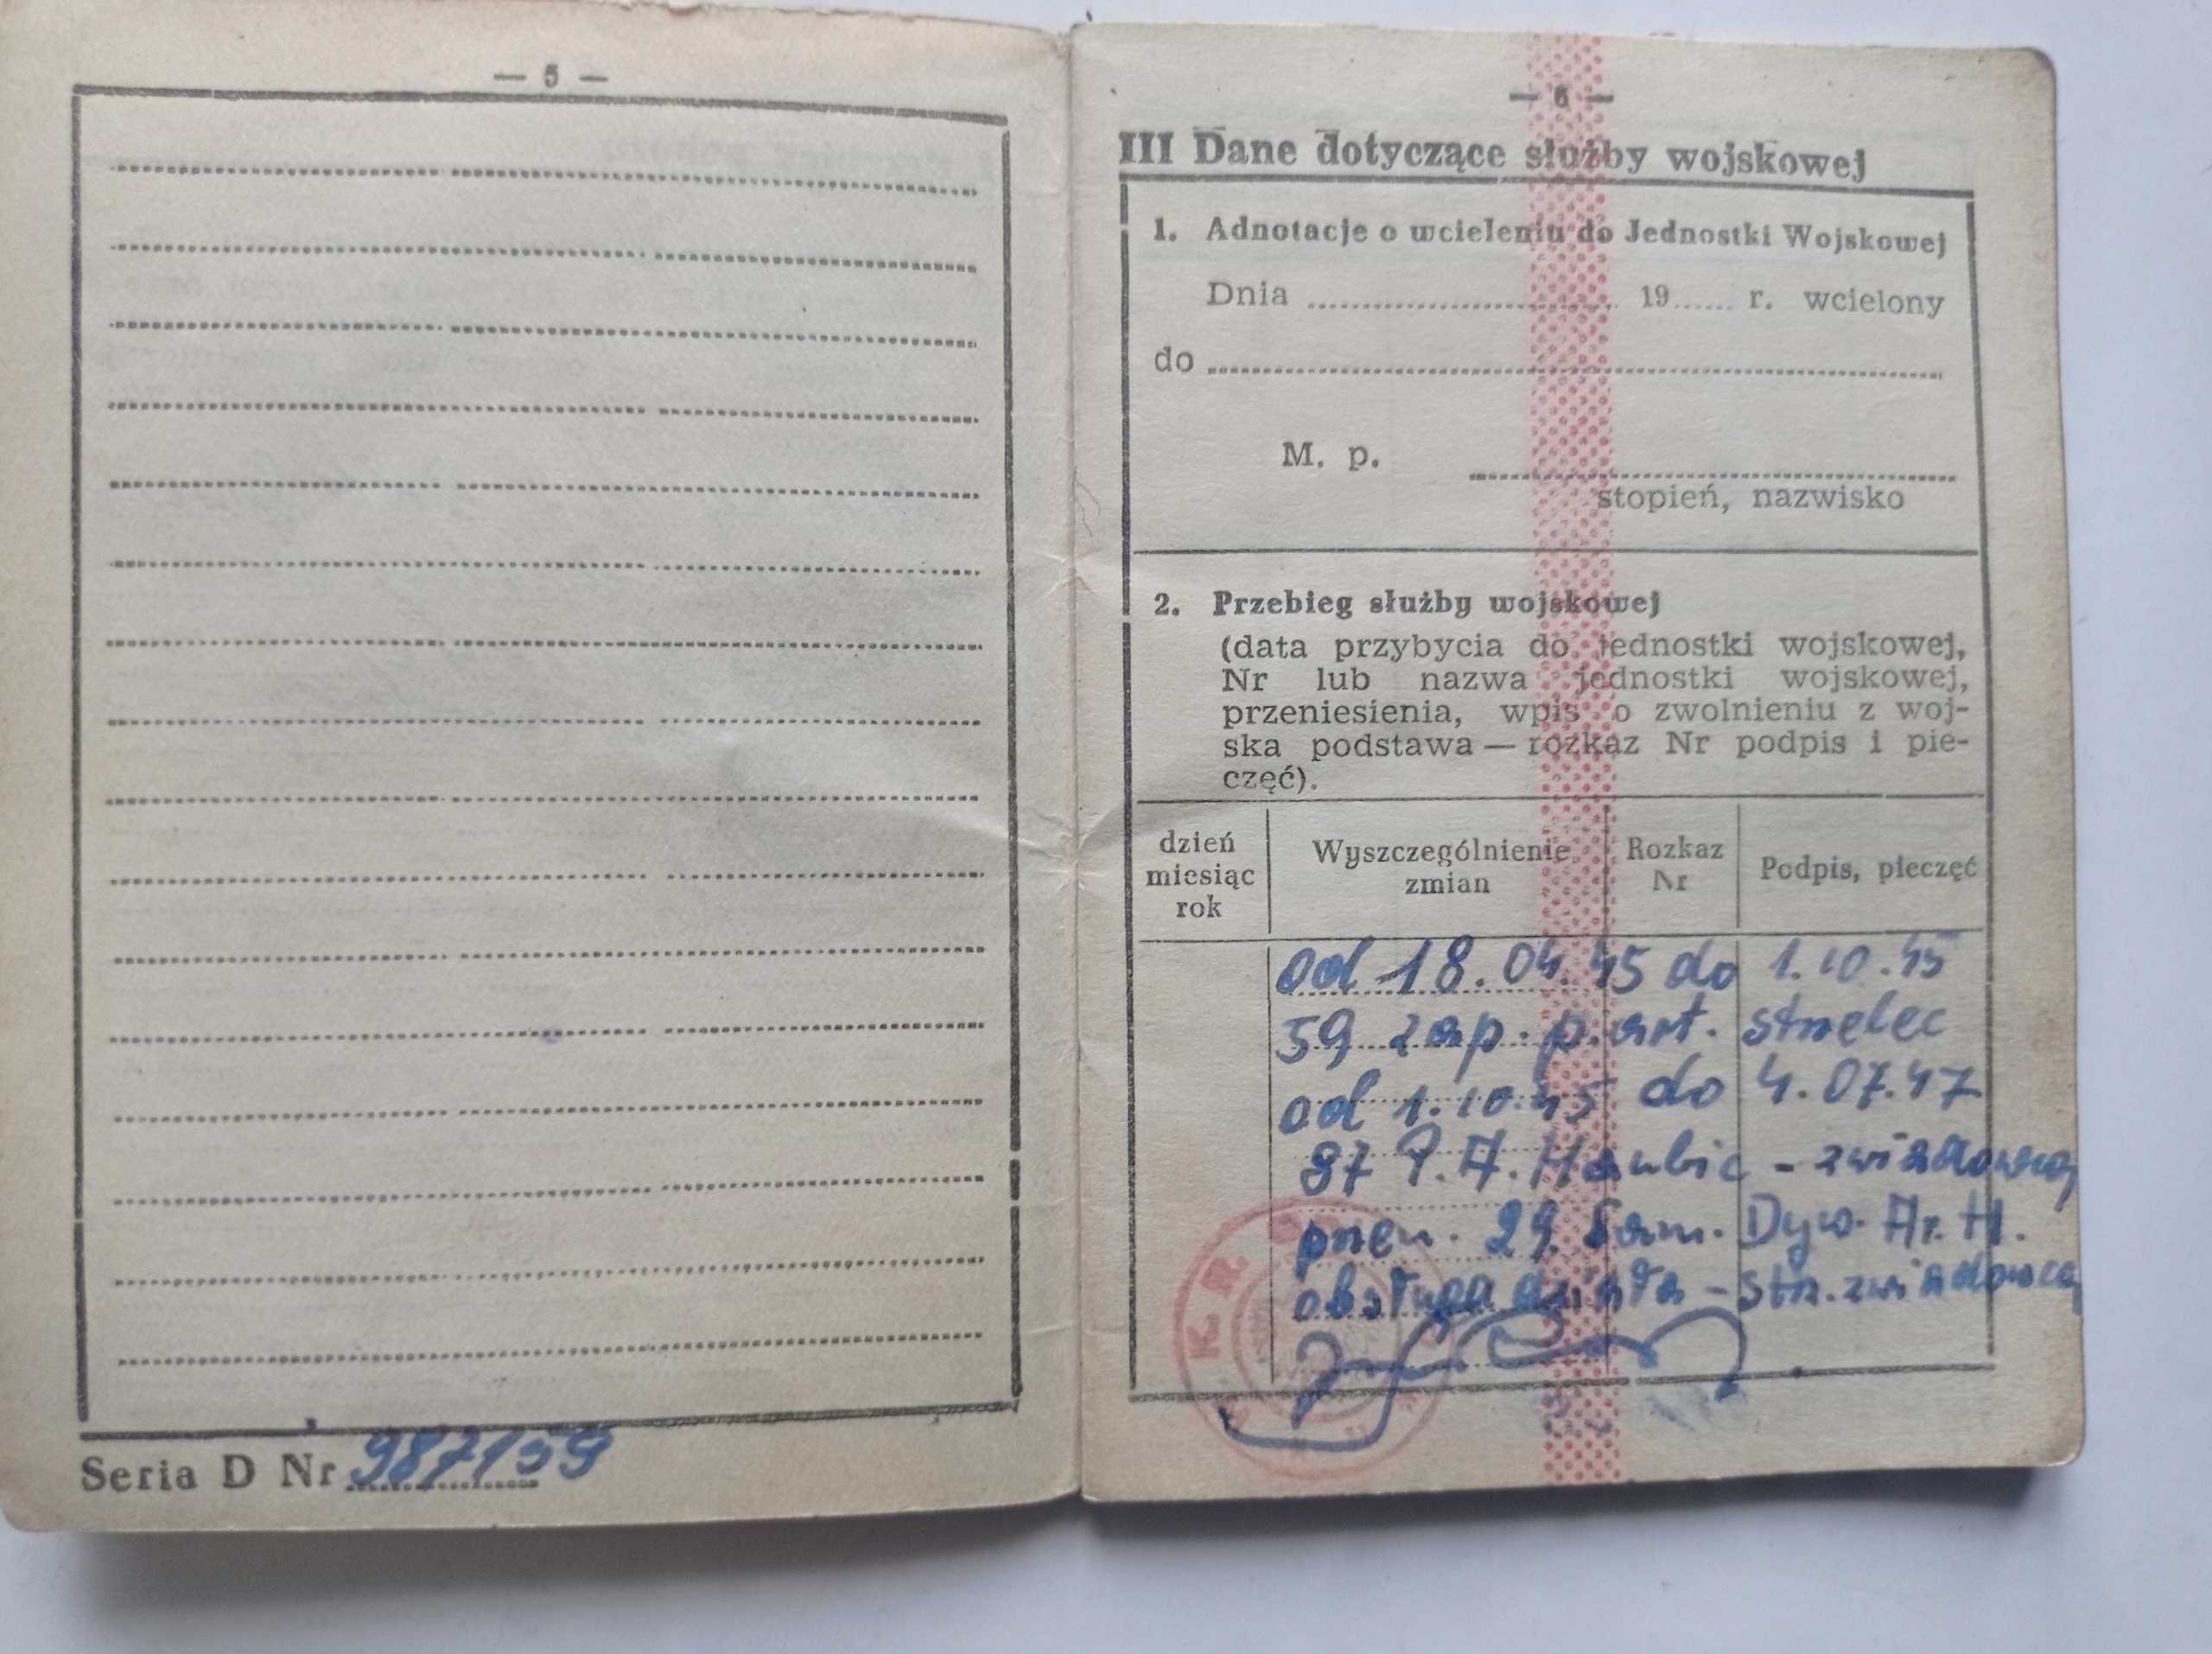 — 5 —
Seria D Nr 987159
— 6 —
III Dane dotyczące służby wojskowej
1. Adnotacje o wcieleniu do Jednostki Wojskowej
Dnia 19 r. wcielony
do
M. p.
stopień, nazwisko
2. Przebieg służby wojskowej
(data przybycia do jednostki wojskowej,
Nr lub nazwa jednostki wojskowej,
przeniesienia, wpis o zwolnieniu z woj-
ska podstawa — rozkaz Nr podpis i pie-
częć).
dzień
miesiąc
rok
Wyszczególnienie
zmian
Rozkaz
Nr
Podpis, pieczęć
od 18.04.45 do 1.10.45
59 zap. p. art. strzelec
od 1.10.45 do 4.07.47
87 P.A. Haubic - zwiadowca
przen. 29 Sam. Dyw. Ar. H.
obsługa działa - str. zwiadowca
K. R.